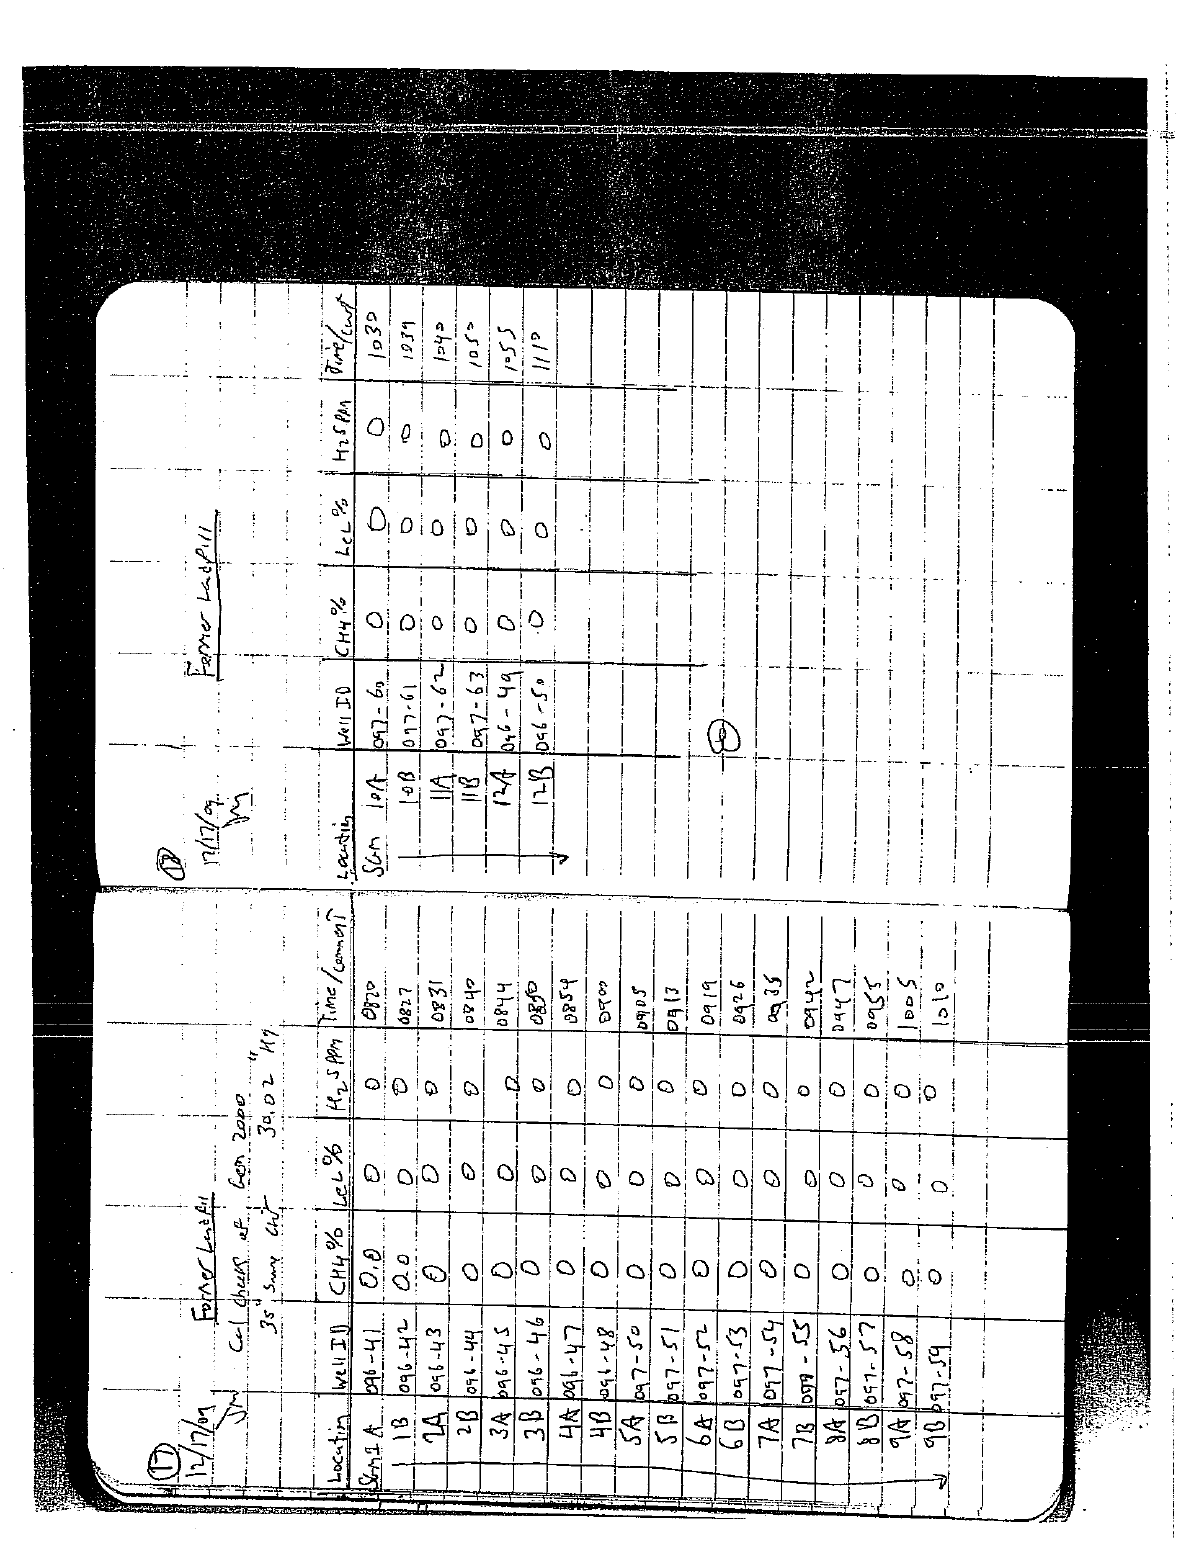 17
12/17/09
Former Landfill
Cal check of Gem 2000
30.02 " Hg
Location Well ID CH4% LeL% H2S PPM Time/comment
1A 096-41 0.0 0 0 0820
1B 096-42 0.0 0 0 0827
2A 096-43 0 0 0 0831
2B 096-44 0 0 0 0840
3A 096-45 0 0 0 0844
3B 096-46 0 0 0 0850
4A 096-47 0 0 0 0854
4B 096-48 0 0 0 0900
5A 097-50 0 0 0 0905
5B 097-51 0 0 0 0913
6A 097-52 0 0 0 0919
6B 097-53 0 0 0 0926
7A 097-54 0 0 0 0935
7B 097-55 0 0 0 0942
8A 097-56 0 0 0 0947
8B 097-57 0 0 0 0955
9A 097-58 0 0 0 1005
9B 097-59 0 0 0 1010
12/17/09
Former Landfill
Location Well ID CH4% LeL% H2S PPM Time/cmt
10A 097-60 0 0 0 1030
10B 097-61 0 0 0 1039
11A 097-62 0 0 0 1040
11B 097-63 0 0 0 1050
12A 096-49 0 0 0 1055
12B 096-50 0 0 0 1110